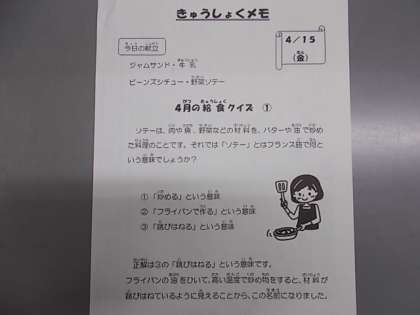 きゅうしょくメモ
4/15
(金)
今日の献立
ジャムサンド・牛乳
ビーンズシチュー・野菜ソテー
4月の給食クイズ ①
ソテーは、肉や魚、野菜などの材料を、バターや油で炒め
た料理のことです。それでは「ソテー」とはフランス語で何と
いう意味でしょうか?
① 「炒める」という意味
② 「フライパンで作る」という意味
③ 「跳びはねる」という意味
正解は③の「跳びはねる」という意味です。
フライパンの油をひいて、高い温度で炒め物をすると、材料が
跳びはねているように見えることから、この名前になりました。